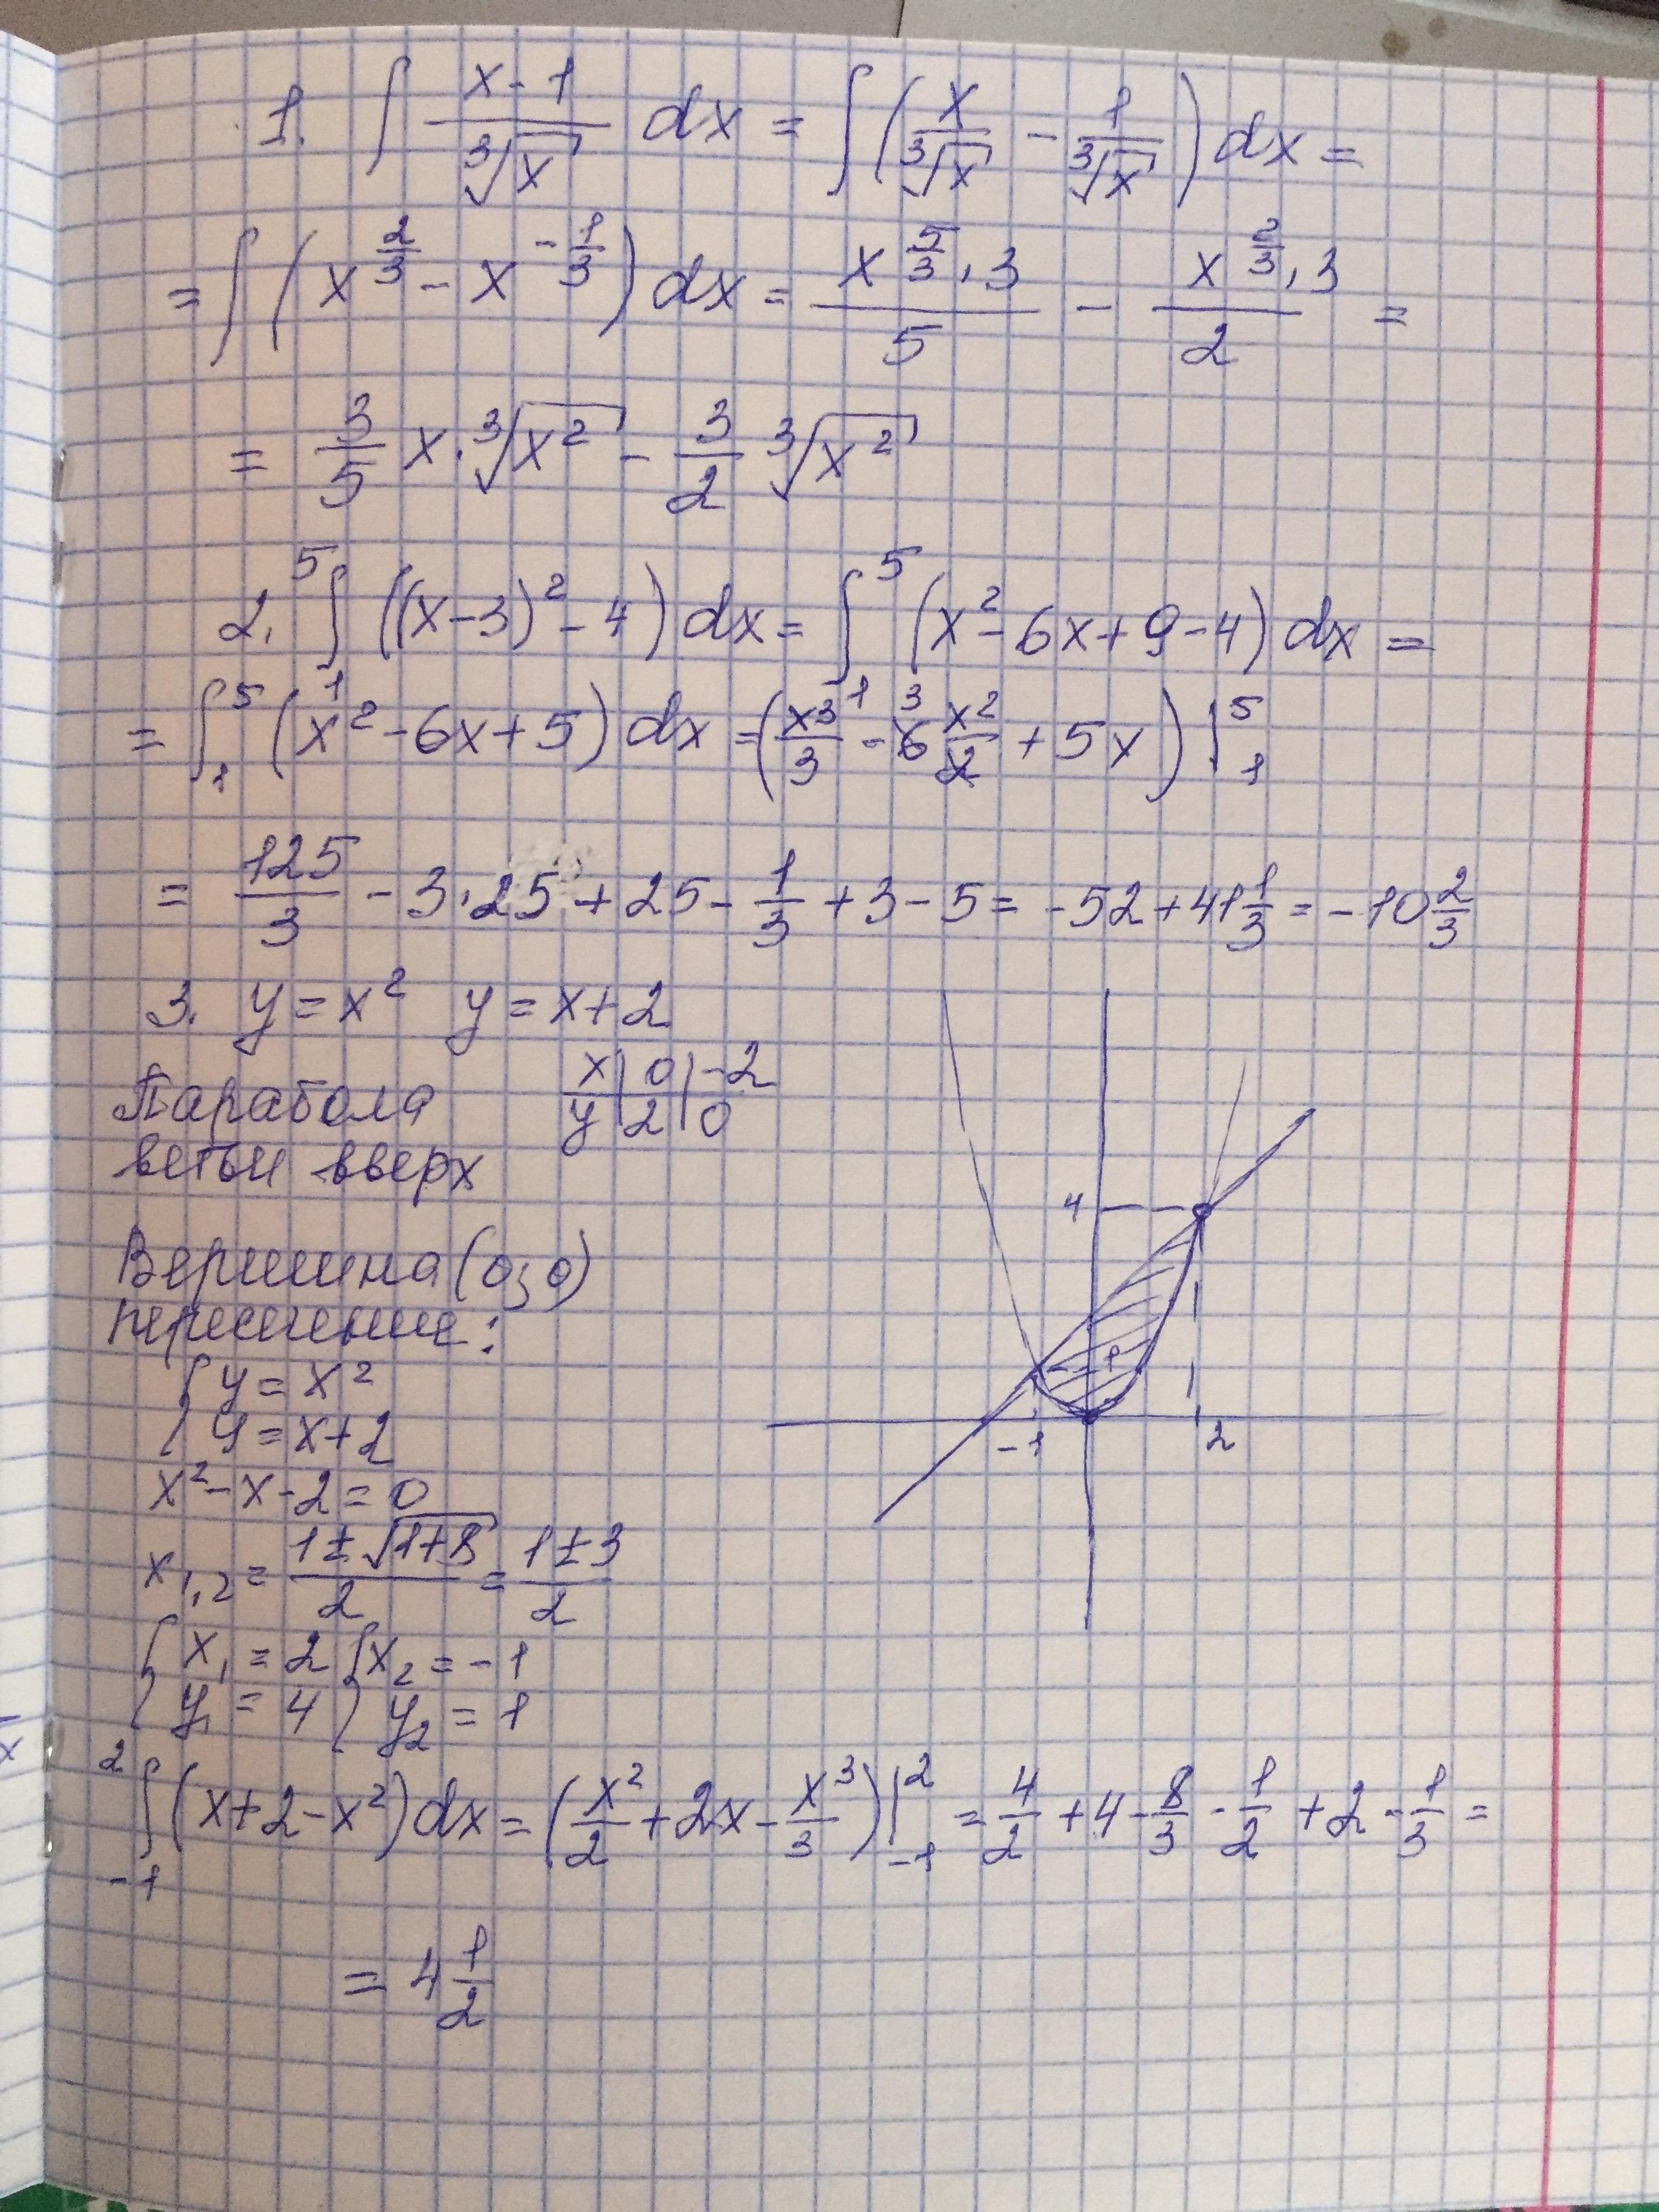 1. ∫ (x-1)/∛x dx = ∫ (x/∛x - 1/∛x) dx =
= ∫ (x^(2/3) - x^(-1/3)) dx = (x^(5/3) · 3)/5 - (x^(2/3) · 3)/2 =
= 3/5 x · ∛(x²) - 3/2 ∛(x²)
2. ∫₁⁵ ((x-3)² - 4) dx = ∫₁⁵ (x² - 6x + 9 - 4) dx =
= ∫₁⁵ (x² - 6x + 5) dx = (x³/3 - 6 x²/2 + 5x) |₁⁵
3
= 125/3 - 3·25 + 25 - 1/3 + 3 - 5 = -52 + 41 1/3 = -10 2/3
3. y = x² y = x+2
x | 0 | -2
y | 2 | 0
Парабола
ветви вверх
Вершина (0; 0)
пересечение:
{ y = x²
{ y = x+2
x² - x - 2 = 0
x₁,₂ = (1 ± √(1+8))/2 = (1 ± 3)/2
{ x₁ = 2 { x₂ = -1
{ y₁ = 4 { y₂ = 1
4
1
-1 2
∫₋₁² (x + 2 - x²) dx = (x²/2 + 2x - x³/3) |₋₁² = 4/2 + 4 - 8/3 - 1/2 + 2 - 1/3 =
= 4 1/2